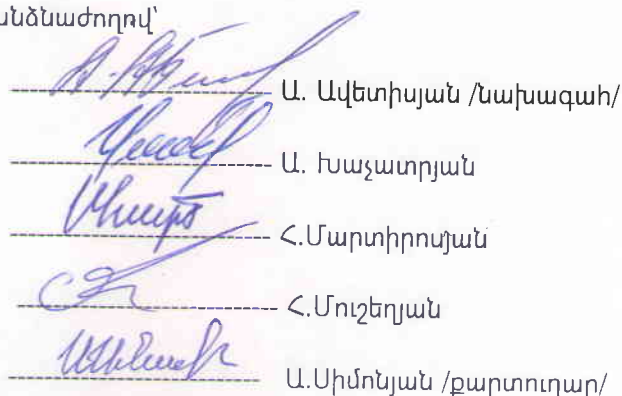 անձնաժողով՝
Ա. Ավետիսյան /նախագահ/
Ա. Խաչատրյան
Հ.Մարտիրոսյան
Հ.Մուշեղյան
Ա.Սիմոնյան /քարտուղար/